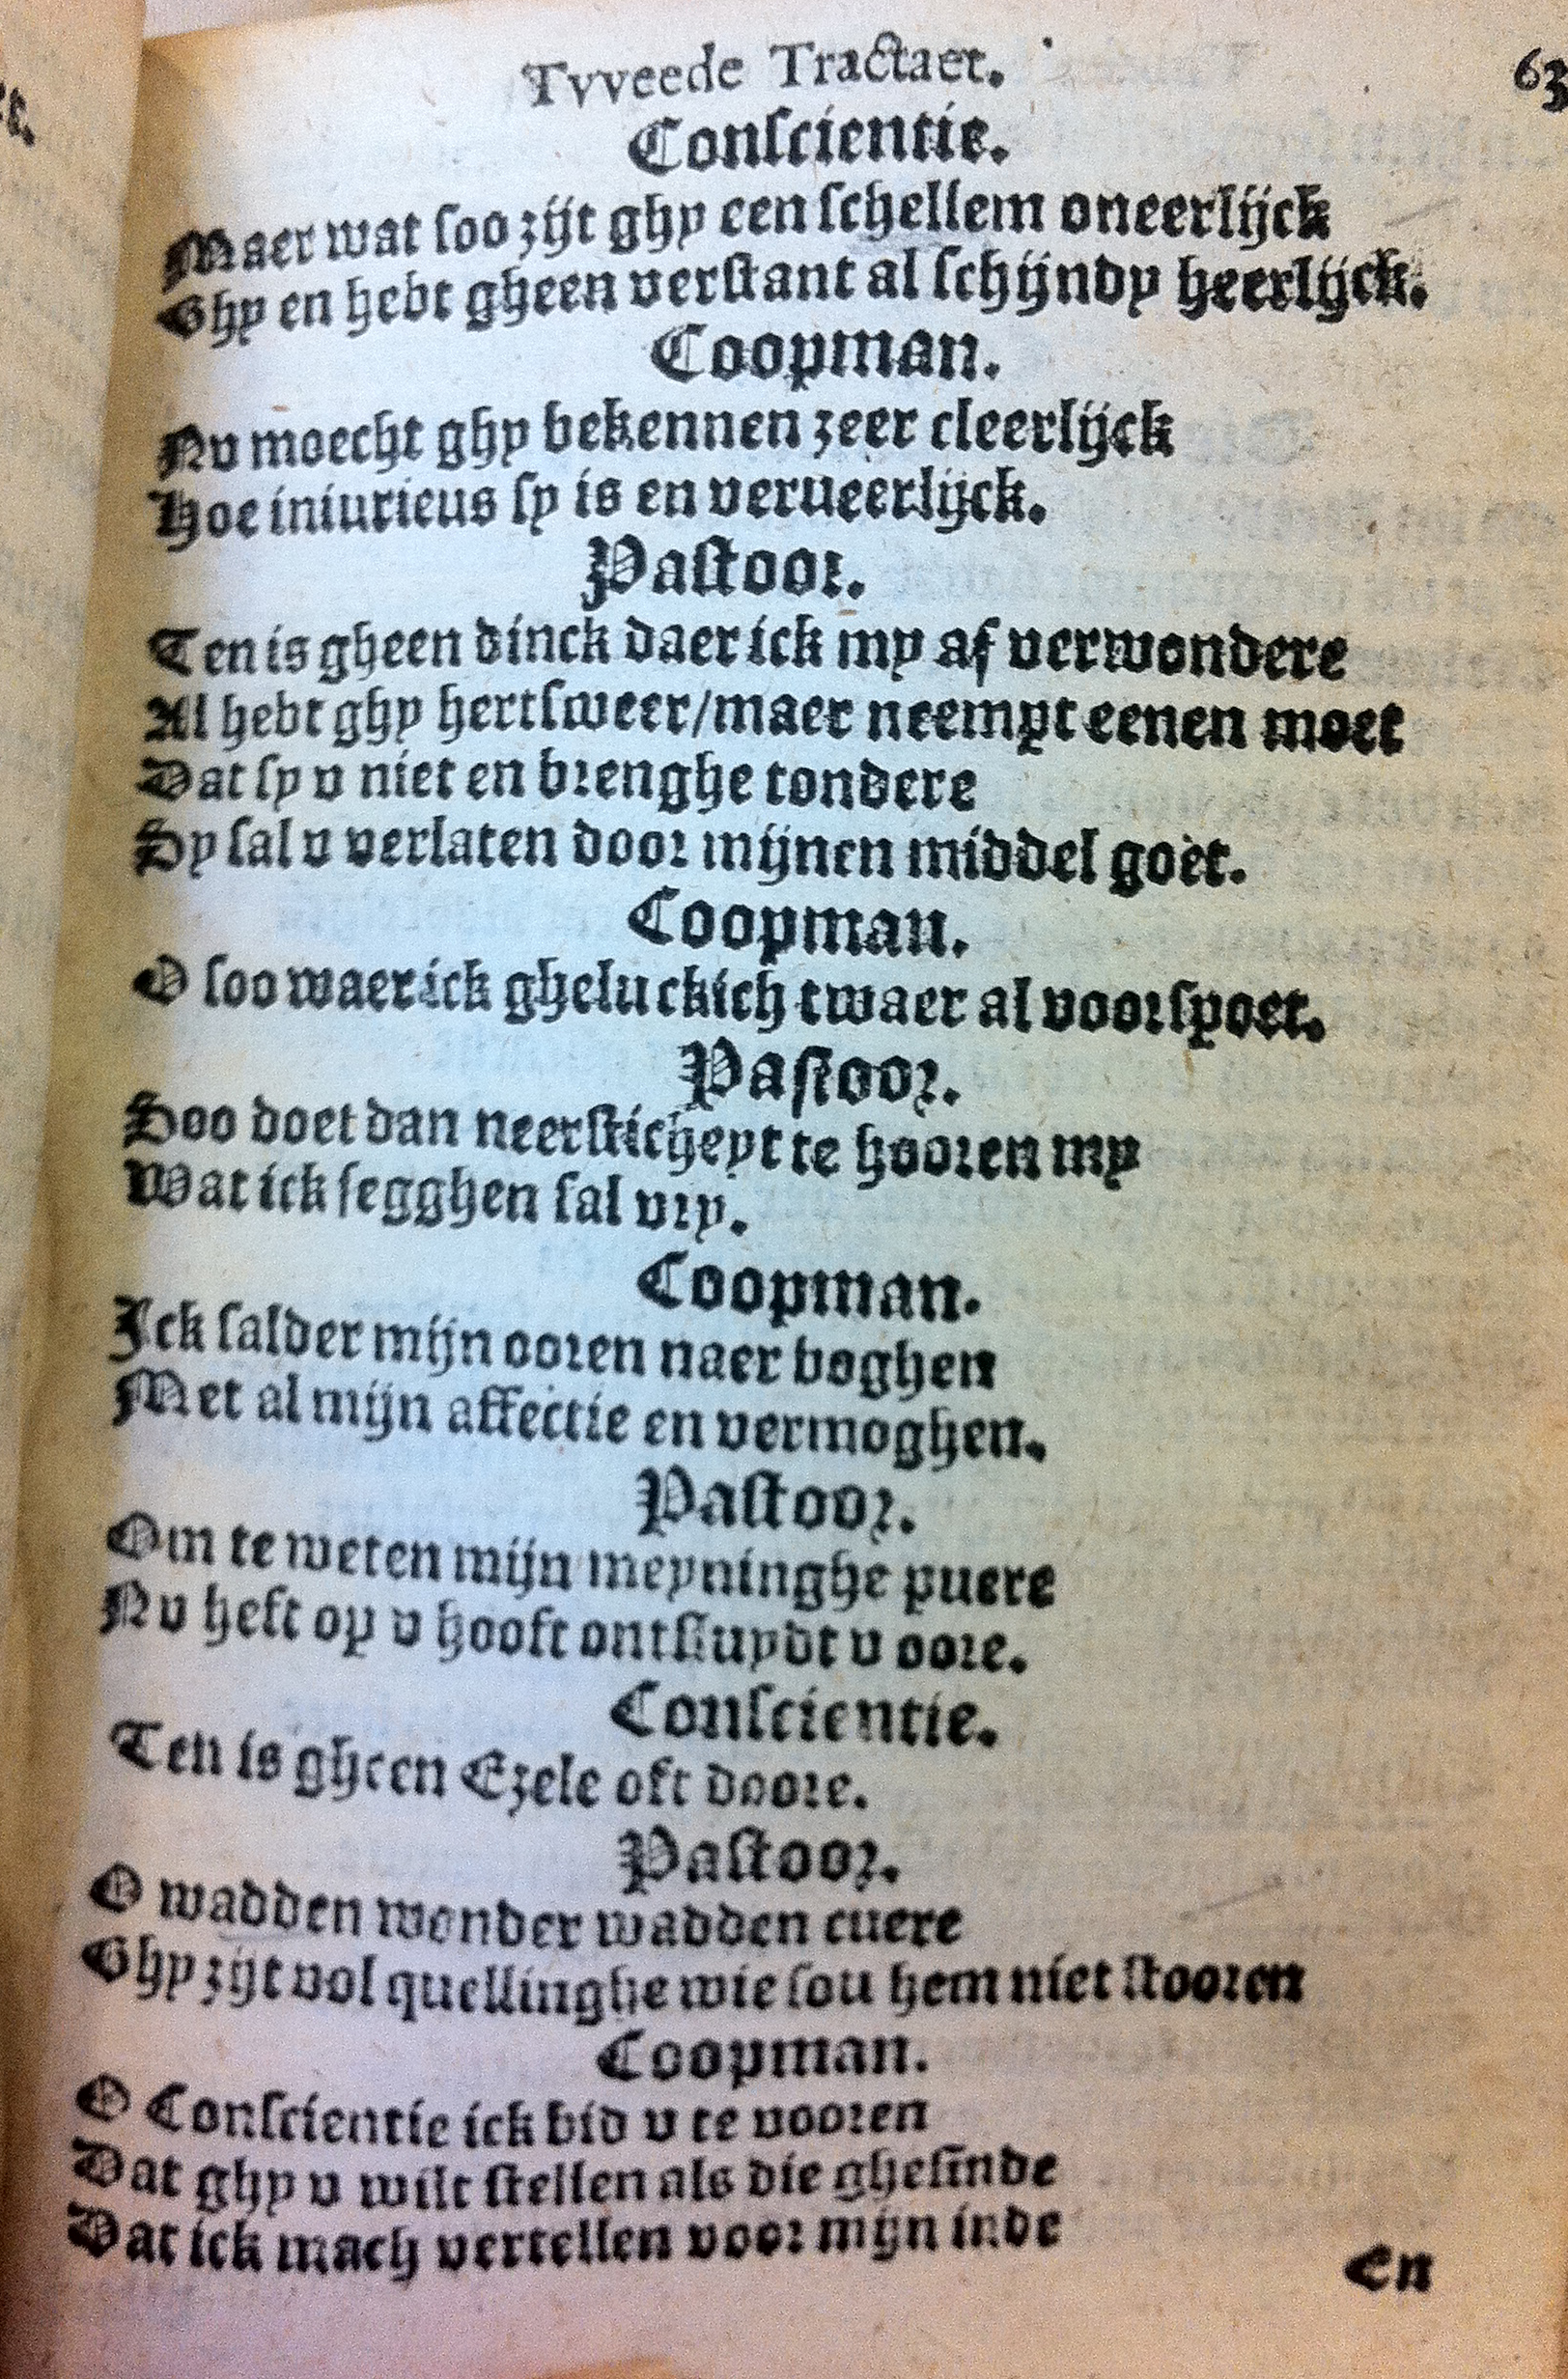 Tvveede Tractaet.
63
Conſcientie.
Maer wat ſoo zijt ghy een ſchellem oneerlijck
Ghy en hebt gheen verſtant al ſchijndy heerlijck.
Coopman.
Nv moecht ghy bekennen zeer cleerlijck
Hoe iniurieus ſy is en verueerlijck.
Paſtoor.
Ten is gheen dinck daer ick my af verwondere
Al hebt ghy hertſweer/maer neempt eenen moet
Dat ſy v niet en brenghe tondere
Sy ſal v verlaten door mijnen middel goet.
Coopman.
O ſoo waer ick gheluckich twaer al voorſpoet.
Paſtoor.
Soo doet dan neerſticheyt te hooren my
Wat ick ſegghen ſal vry.
Coopman.
Ick ſalder mijn ooren naer boghen
Met al mijn affectie en vermoghen.
Paſtoor.
Om te weten mijn meyninghe puere
Nv heft op v hooft ontſluydt v oore.
Conſcientie.
Ten is gheen Ezele oft doore.
Paſtoor.
O wadden wonder wadden cuere
Ghy zijt vol quellinghe wie ſou hem niet ſtooren
Coopman.
O Conſcientie ick bid v te vooren
Dat ghy v wilt ſtellen als die gheſinde
Dat ick mach vertellen voor mijn inde
En